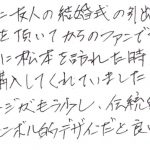 に友人の結婚式の引出
を頂いてからのファンで
に松本を訪れた時
購入してくれていました
ージがもう少し、伝統的
ンボル的デザインだと良い